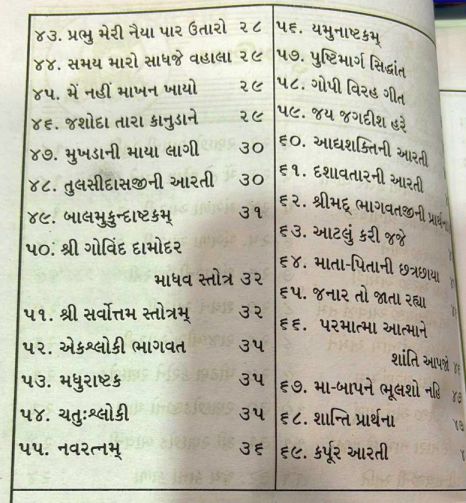 ૪૩. પ્રભુ મેરી નૈયા પાર ઉતારો ૨૮
૪૪. સમય મારો સાધજે વહાલા ૨૯
૪૫. મેં નહીં માખન ખાયો ૨૯
૪૬. જશોદા તારા કાનુડાને ૨૯
૪૭. મુખડાની માયા લાગી ૩૦
૪૮. તુલસીદાસજીની આરતી ૩૦
૪૯. બાલમુકુન્દાષ્ટકમ્ ૩૧
૫૦. શ્રી ગોવિંદ દામોદર
માધવ સ્તોત્ર ૩૨
૫૧. શ્રી સર્વોત્તમ સ્તોત્રમ્ ૩૨
૫૨. એકશ્લોકી ભાગવત ૩૫
૫૩. મધુરાષ્ટક ૩૫
૫૪. ચતુઃશ્લોકી ૩૫
૫૫. નવરત્નમ્ ૩૬
૫૬. યમુનાષ્ટકમ્
૫૭. પુષ્ટિમાર્ગ સિદ્ધાંત
૫૮. ગોપી વિરહ ગીત
૫૯. જય જગદીશ હરે
૬૦. આદ્યશક્તિની આરતી
૬૧. દશાવતારની આરતી
૬૨. શ્રીમદ્ ભાગવતજીની પ્રાર્થના
૬૩. આટલું કરી જજે
૬૪. માતા-પિતાની છત્રછાયા
૬૫. જનાર તો જાતા રહ્યા
૬૬. પરમાત્મા આત્માને
શાંતિ આપજો
૬૭. મા-બાપને ભૂલશો નહિ
૬૮. શાન્તિ પ્રાર્થના
૬૯. કર્પૂર આરતી